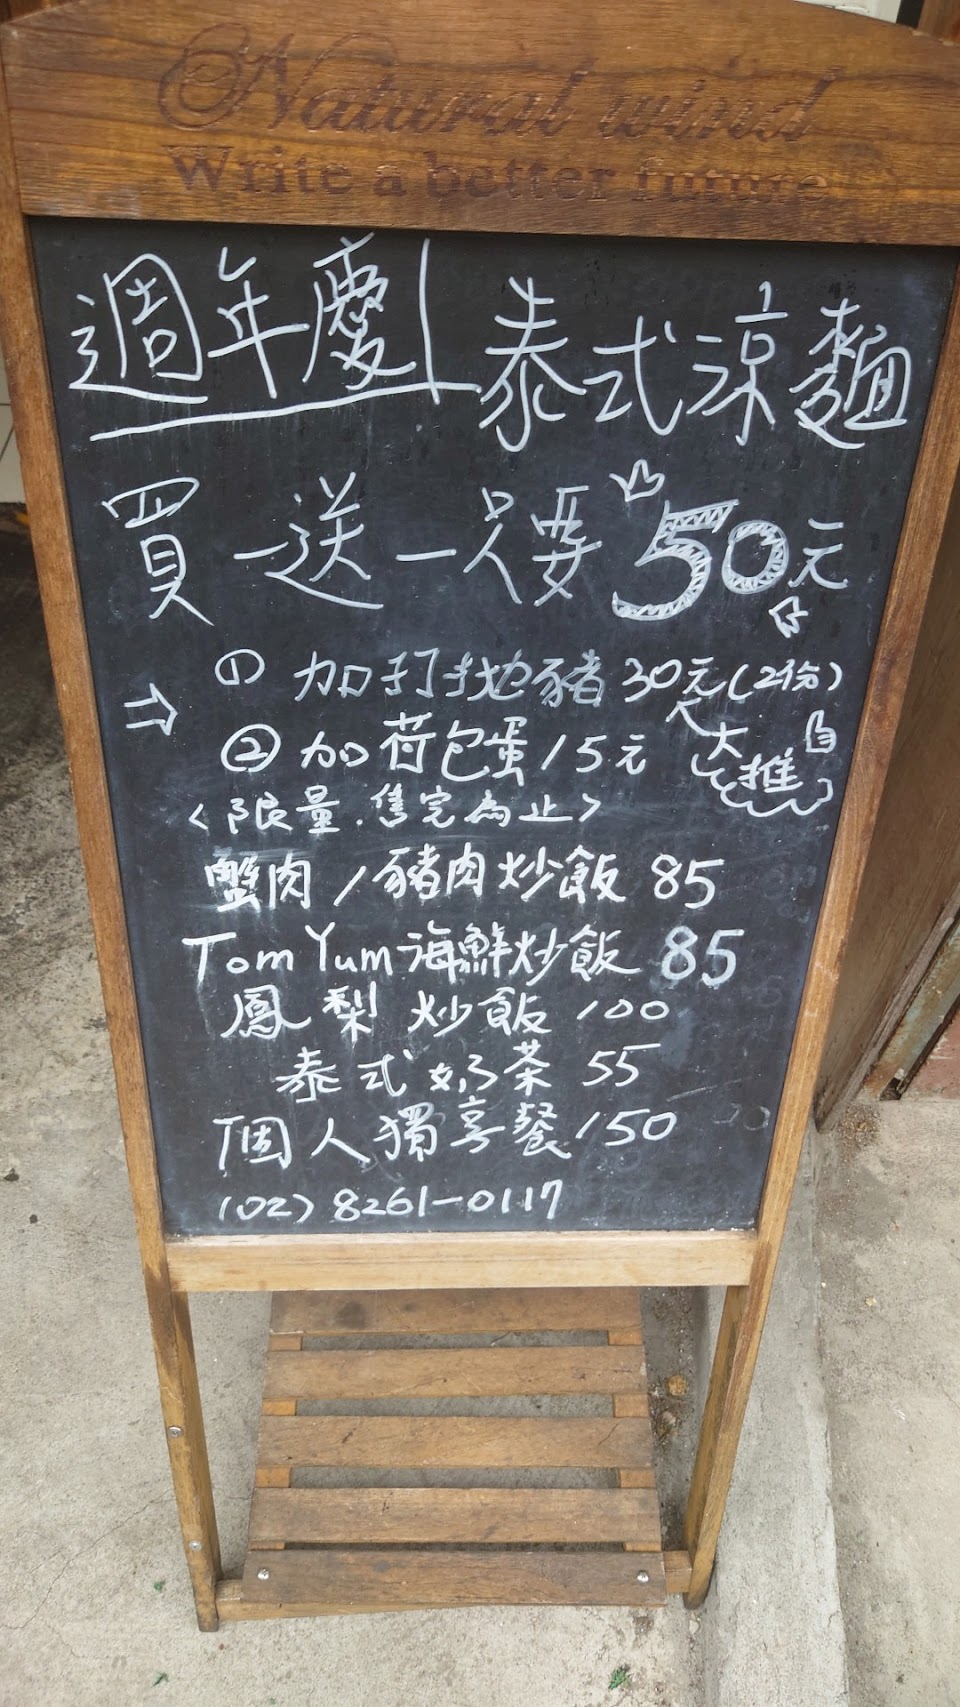 Natural wind
Write a better future
週年慶 泰式涼麵
買一送一只要50元
① 加打拋豬30元(2份)
大推
② 加荷包蛋15元
<限量.售完為止>
蟹肉/豬肉炒飯 85
Tom Yum海鮮炒飯 85
鳳梨炒飯 100
泰式奶茶 55
個人獨享餐150
(02) 8261-0117